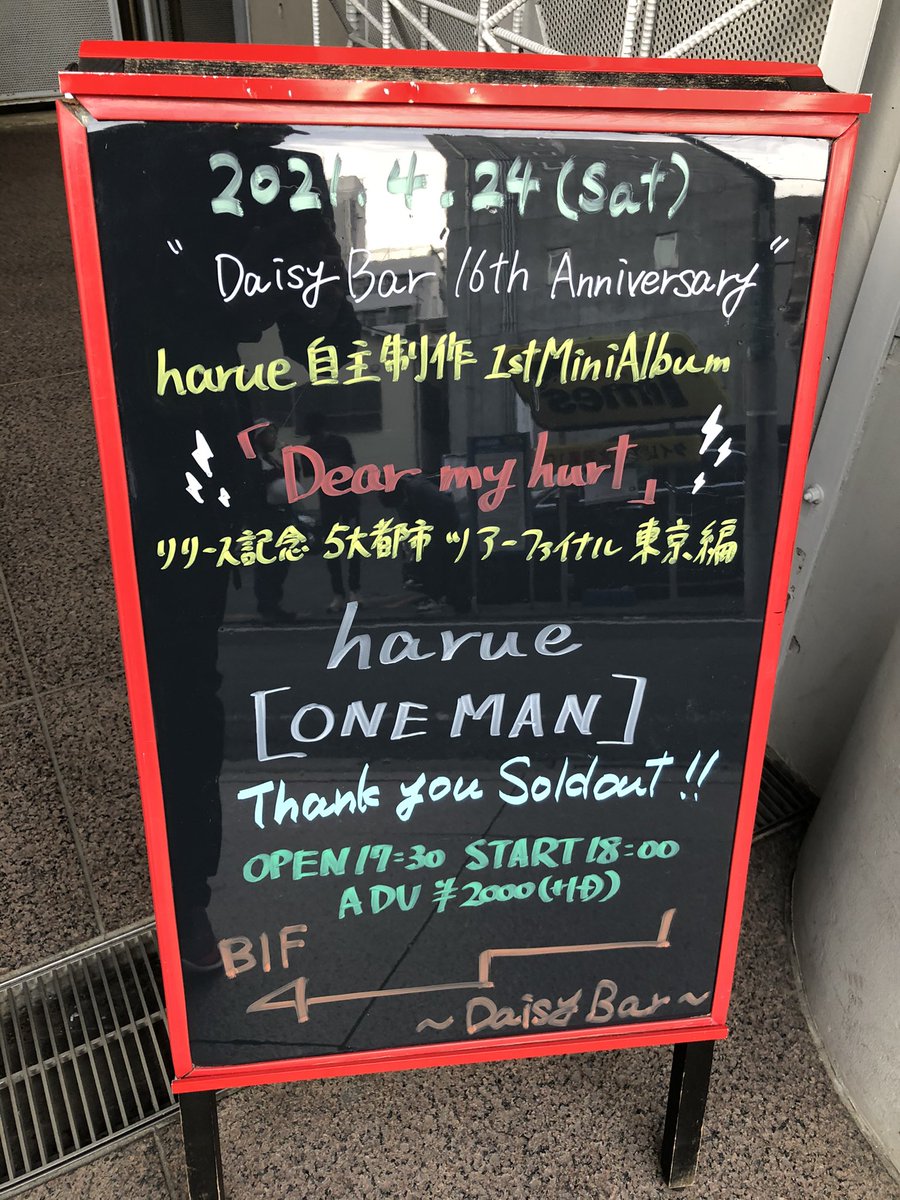 2021.4.24(Sat)
"Daisy Bar 16th Anniversary"
harue 自主制作 1stMiniAlbum
「Dear my hurt」
リリース記念 5大都市 ツアーファイナル 東京編
harue
[ONE MAN]
Thank you Soldout!!
OPEN 17:30 START 18:00
ADV ¥2000(+1D)
B1F
~Daisy Bar~